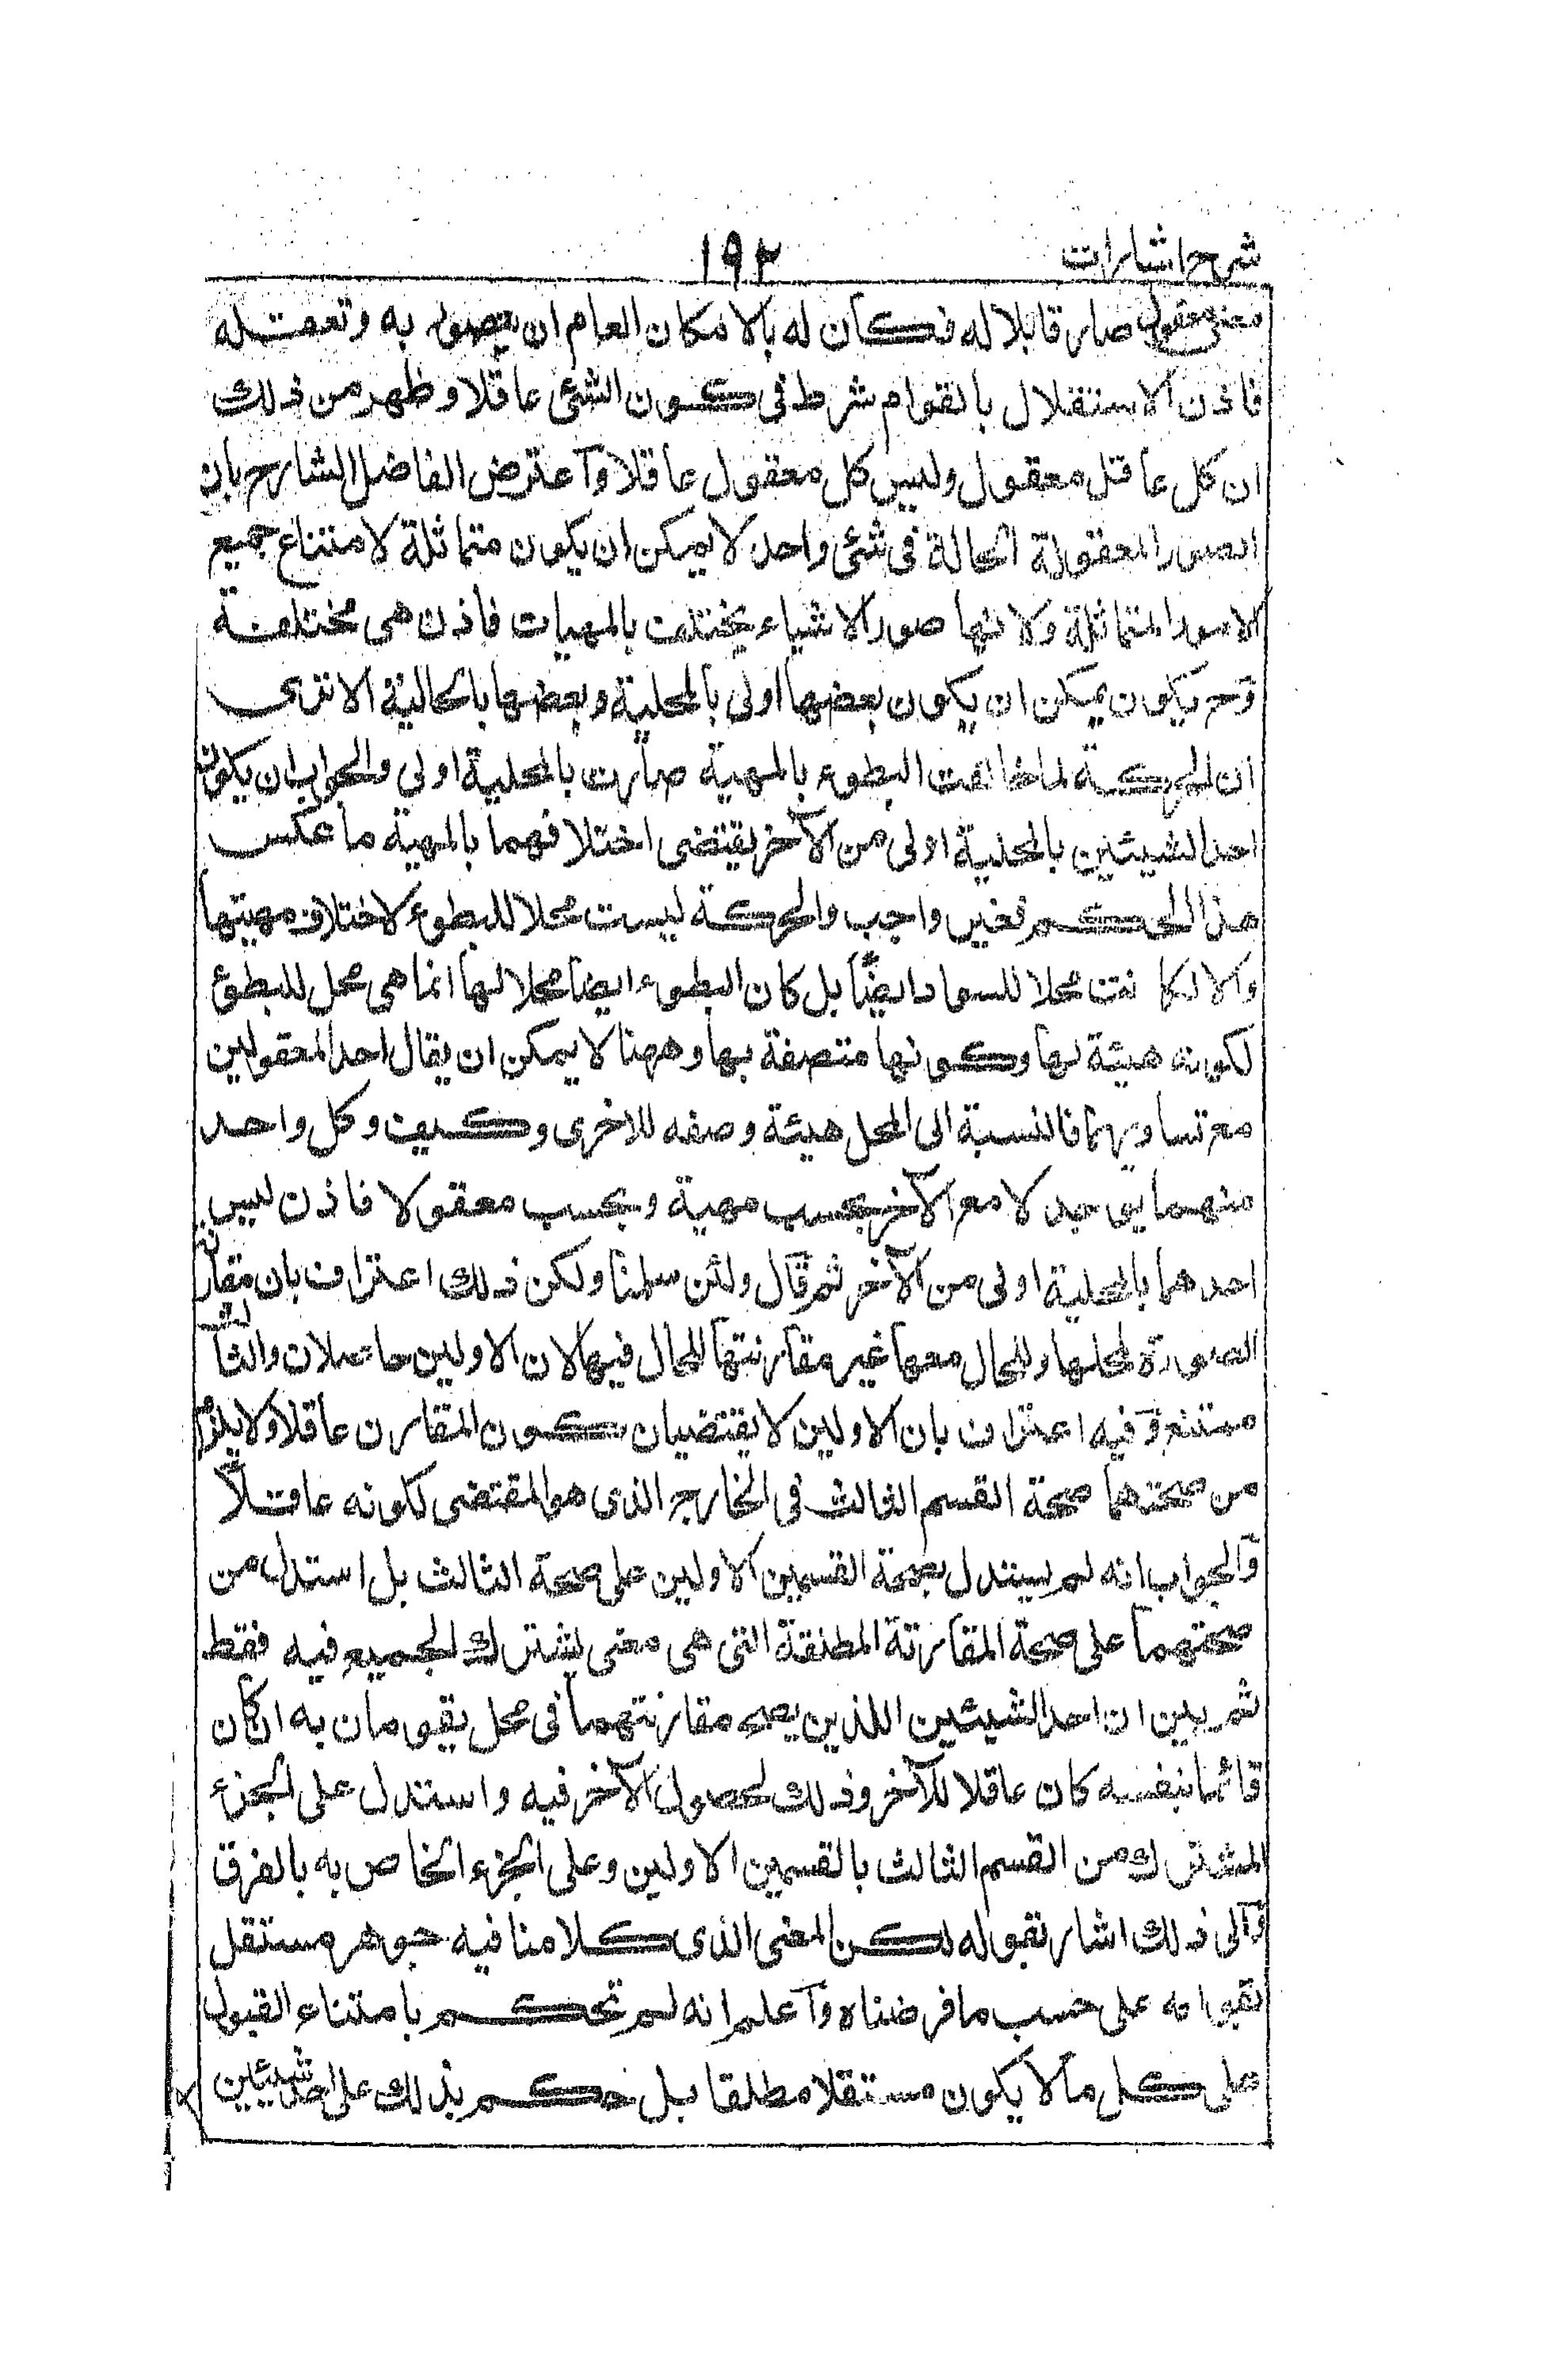 شرح اشارات
١٩٢
معنى معقول صار قابلا له فكان له بالامكان العام ان يتصور به وتعقله
فاذن الاستقلال بالقوام شرط فى كون الشئ عاقلا وظهر من ذلك
ان كل عاقل معقول وليس كل معقول عاقلا وآعترض الفاضل الشارح بان
الصور المعقولة الحالة فى شئ واحد لا يمكن ان يكون متماثلة لامتناع جميع
الامور المتماثلة ولانها صور الاشياء يختلف بالمهيات فاذن هى مختلفة
وح يكون يمكن ان يكون بعضها اولى بالمحلية وبعضها بالحالية الا ترى
ان الحركة لما خالفت البطوء بالمهية صارت بالمحلية اولى والجواب ان يكون
احد الشيئين بالمحلية اولى من الآخر يقتضى اختلافهما بالمهية ما عكس
هذا الحكم فغير واجب والحركة ليست محلا للبطوء لاختلاف مهيتها
والا لكانت محلا للسواد ايضًا بل كان البطوء ايضا محلا لها انما هى محل للبطوء
لكونه هيئة لها وكونها متصفة بها وههنا لا يمكن ان يقال احد المعقولين
مع تساويهما فالنسبة الى المحل هيئة وصفه للاخرى وكيف وكل واحد
منهما يوجد لا مع الآخر بحسب مهية وبحسب معقولا فاذن ليس
احدهما بالمحلية اولى من الآخر ثم قال ولئن سلمنا ولكن ذلك اعتراف بان مقارنة
الصورة لمحلها وللحال معها غير مقارنتها للحال فيها لان الاولين حاصلان والثالث
ممتنع وفيه اعتراف بان الاولين لا يقتضيان كون المقارن عاقلا ولا يلزم
من صحتهما صحة القسم الثالث فى الخارج الذى هو المقتضى لكونه عاقلاً
وآلجواب انه لم يستدل بصحة القسمين الاولين على صحة الثالث بل استدل من
صحتهما على صحة المقارنة المطلقة التى هى معنى يشترك الجميع فيه فقط
ثم بين ان احد الشيئين اللذين يصح مقارنتهما فى محل يقومان به ان كان
قائما بنفسه كان عاقلا للآخر وذلك لحصول الآخر فيه واستدل على الجزء
المشترك من القسم الثالث بالقسمين الاولين وعلى الجزء الخاص به بالفرق
وآلى ذلك اشار بقوله لكن المعنى الذى كلامنا فيه جوهر مستقل
بقوامه على حسب ما فرضناه وآعلم انه لم تحكم بامتناع القبول
على كل ما لا يكون مستقلا مطلقا بل حكم بذلك على احد شيئين